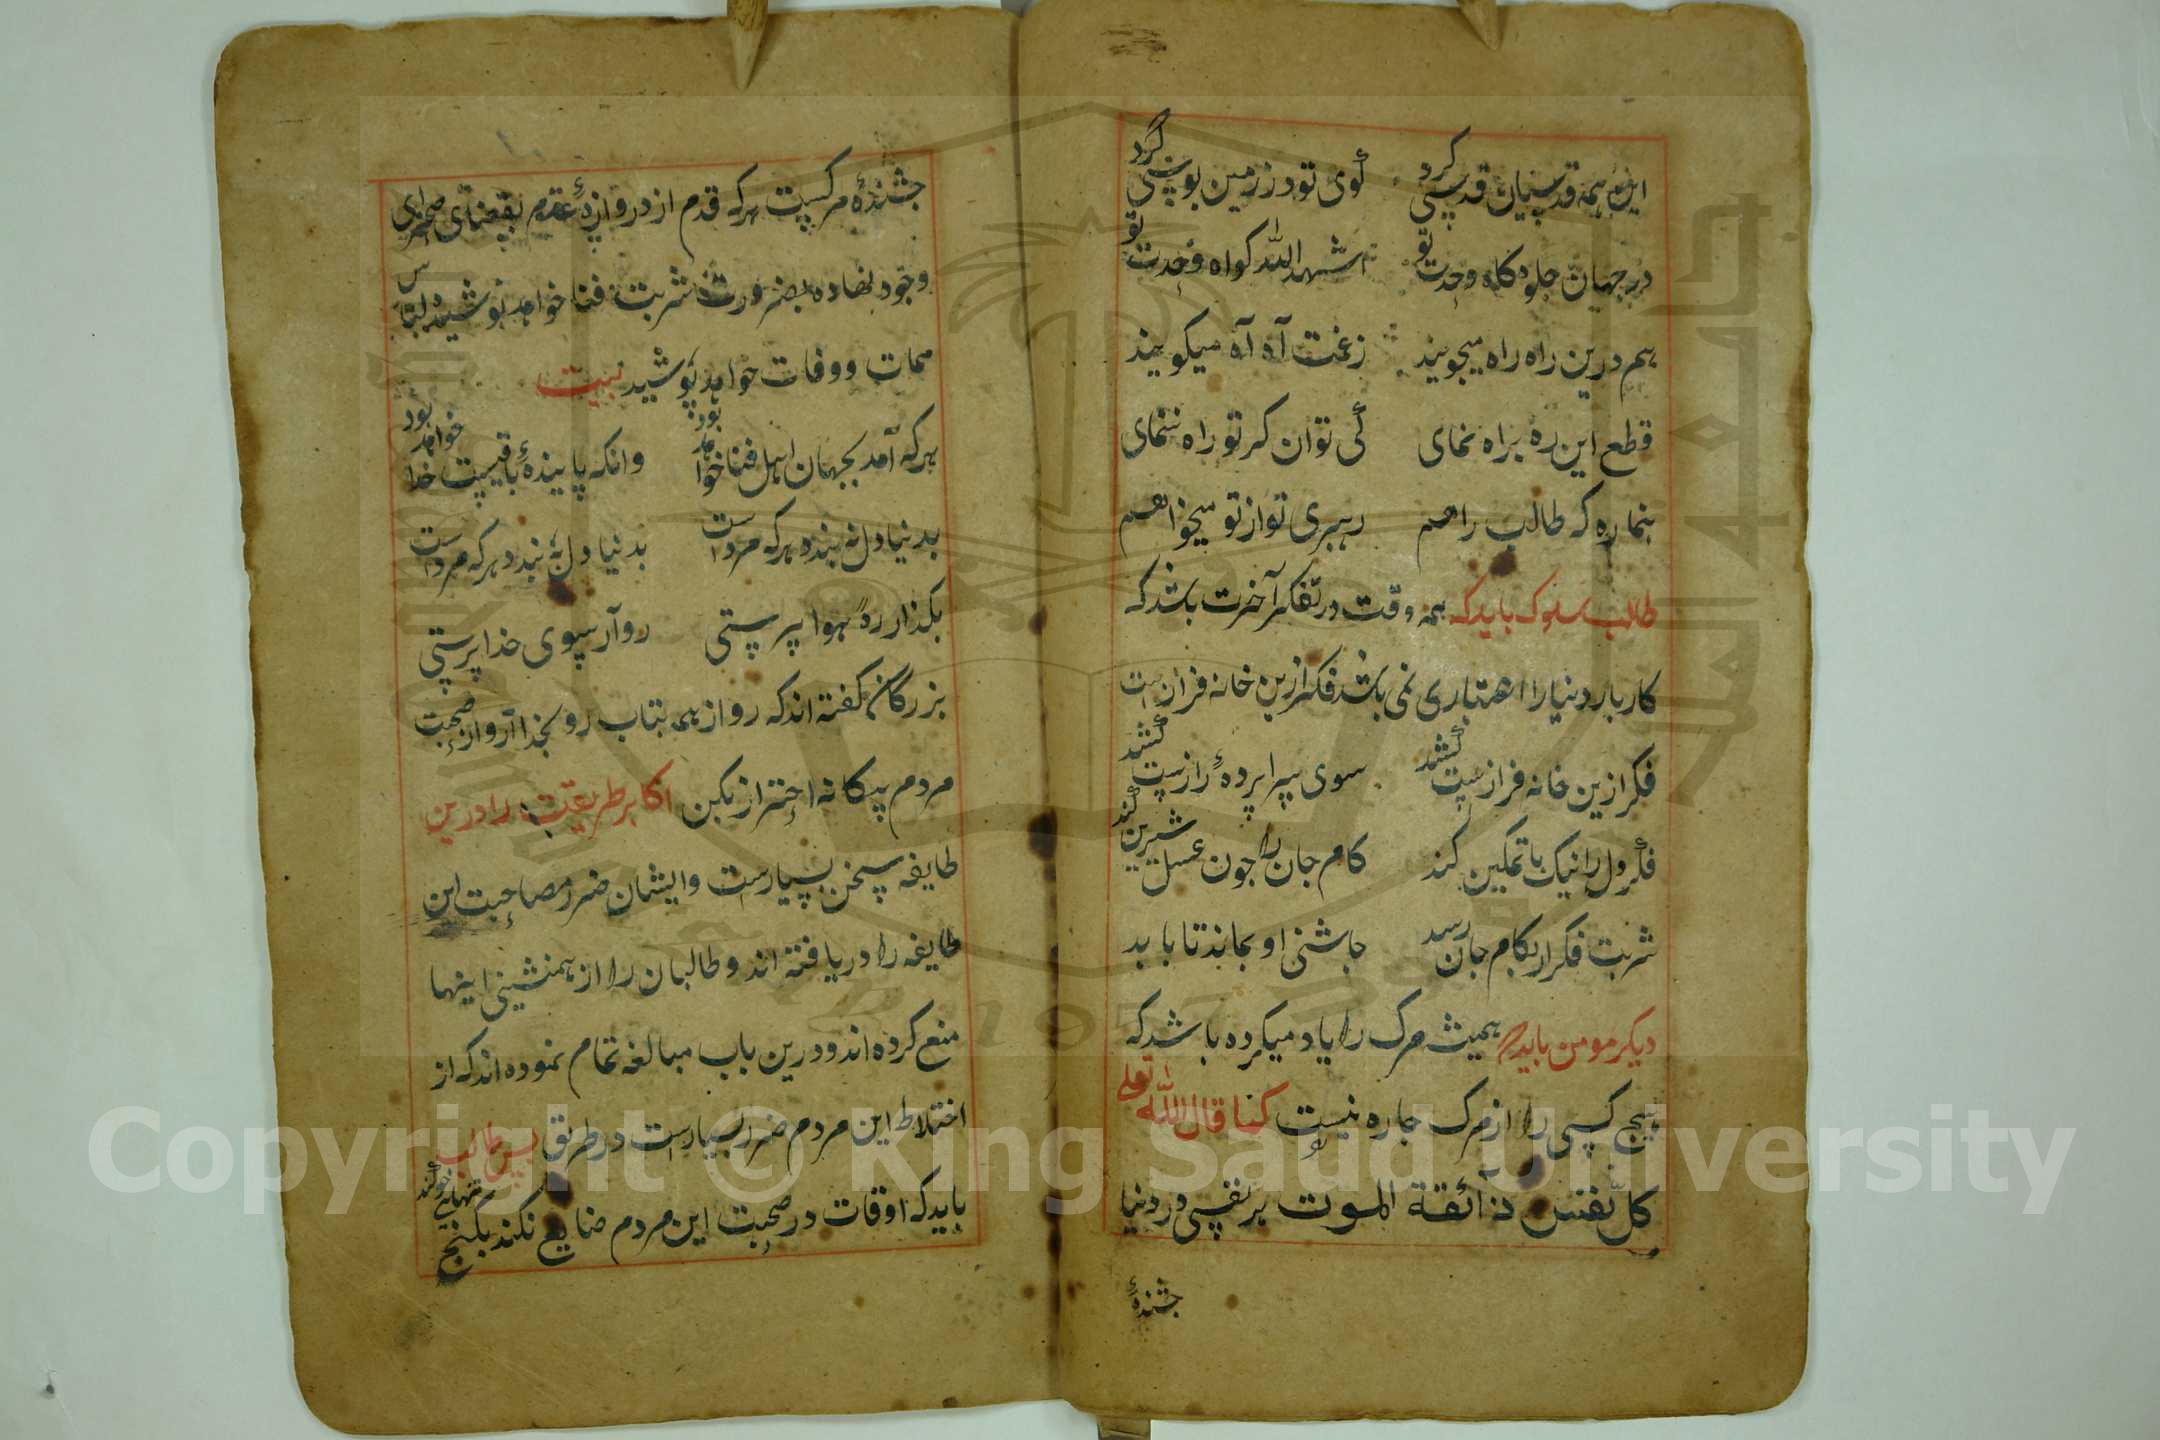 این همه قدسیان قدسی کرد گوی تو در زمین بوسی کرد
در جهان جلوه کاه وحدت تو اشهد الله کواه وحدت تو
هم درین راه راه میجویند زغمت آه آه میکویند
قطع این ره براه نمای کی توان کر تو راه ننمای
بنما ره که طالب راهم رهبری تو از تو میخواهم
طالب سلوک باید که همه وقت در تفکر آخرت باشد که
کار بار دنیا را اعتباری نمی باشد فکر ازین خانه فرازست
فکر ازین خانه فرازست کشد سوی سراپردهٔ رازست کشد
فکر دل را نیک با تمکین کند کام جان را جون عسل شیرین کند
شربت فکر ار بکام جان رسد جاشنی او بماند تا بابد
دیکر مومن باید که همیشه مرک را یاد میکرده باشد که
هیج کسی را از مرک جاره نیست کما قال الله تعلی
کل نفس ذآئقة الموت هر نفسی در دنیا
جشندهٔ
جشندهٔ مرکست هرکه قدم از دروازهٔ عدم بفضای صحرای
وجود نهاده بضرورت شربت فنا خواهد نوشید و لباس
ممات و وفات خواهد پوشید بیت
هرکه آمد بجهان اهل فنا خواهد بود وانکه پاینده باقیست خدا خواهد بود
بدنیا دل نه بندد هرکه مردست بدنیا دل نه بندد هرکه مردست
بکذار ره هوا پرستی رو آر سوی خدا پرستی
بزرکان کفته اند که رو از همه بتاب رو بخدا آر و از صحبت
مردم بیکانه احتراز بکن اکابر طریقت را درین
طایفه سخن بسیارست و ایشان ضرر مصاحبت این
طایفه را دریافته اند و طالبان را از همنشینی اینها
منع کرده اند و درین باب مبالغه تمام نموده اند که از
اختلاط این مردم ضرر بسیارست در طریق پس طالب
باید که اوقات در صحبت این مردم ضایع نکند بکنج تنهایی خو کند
Copyright © King Saud University